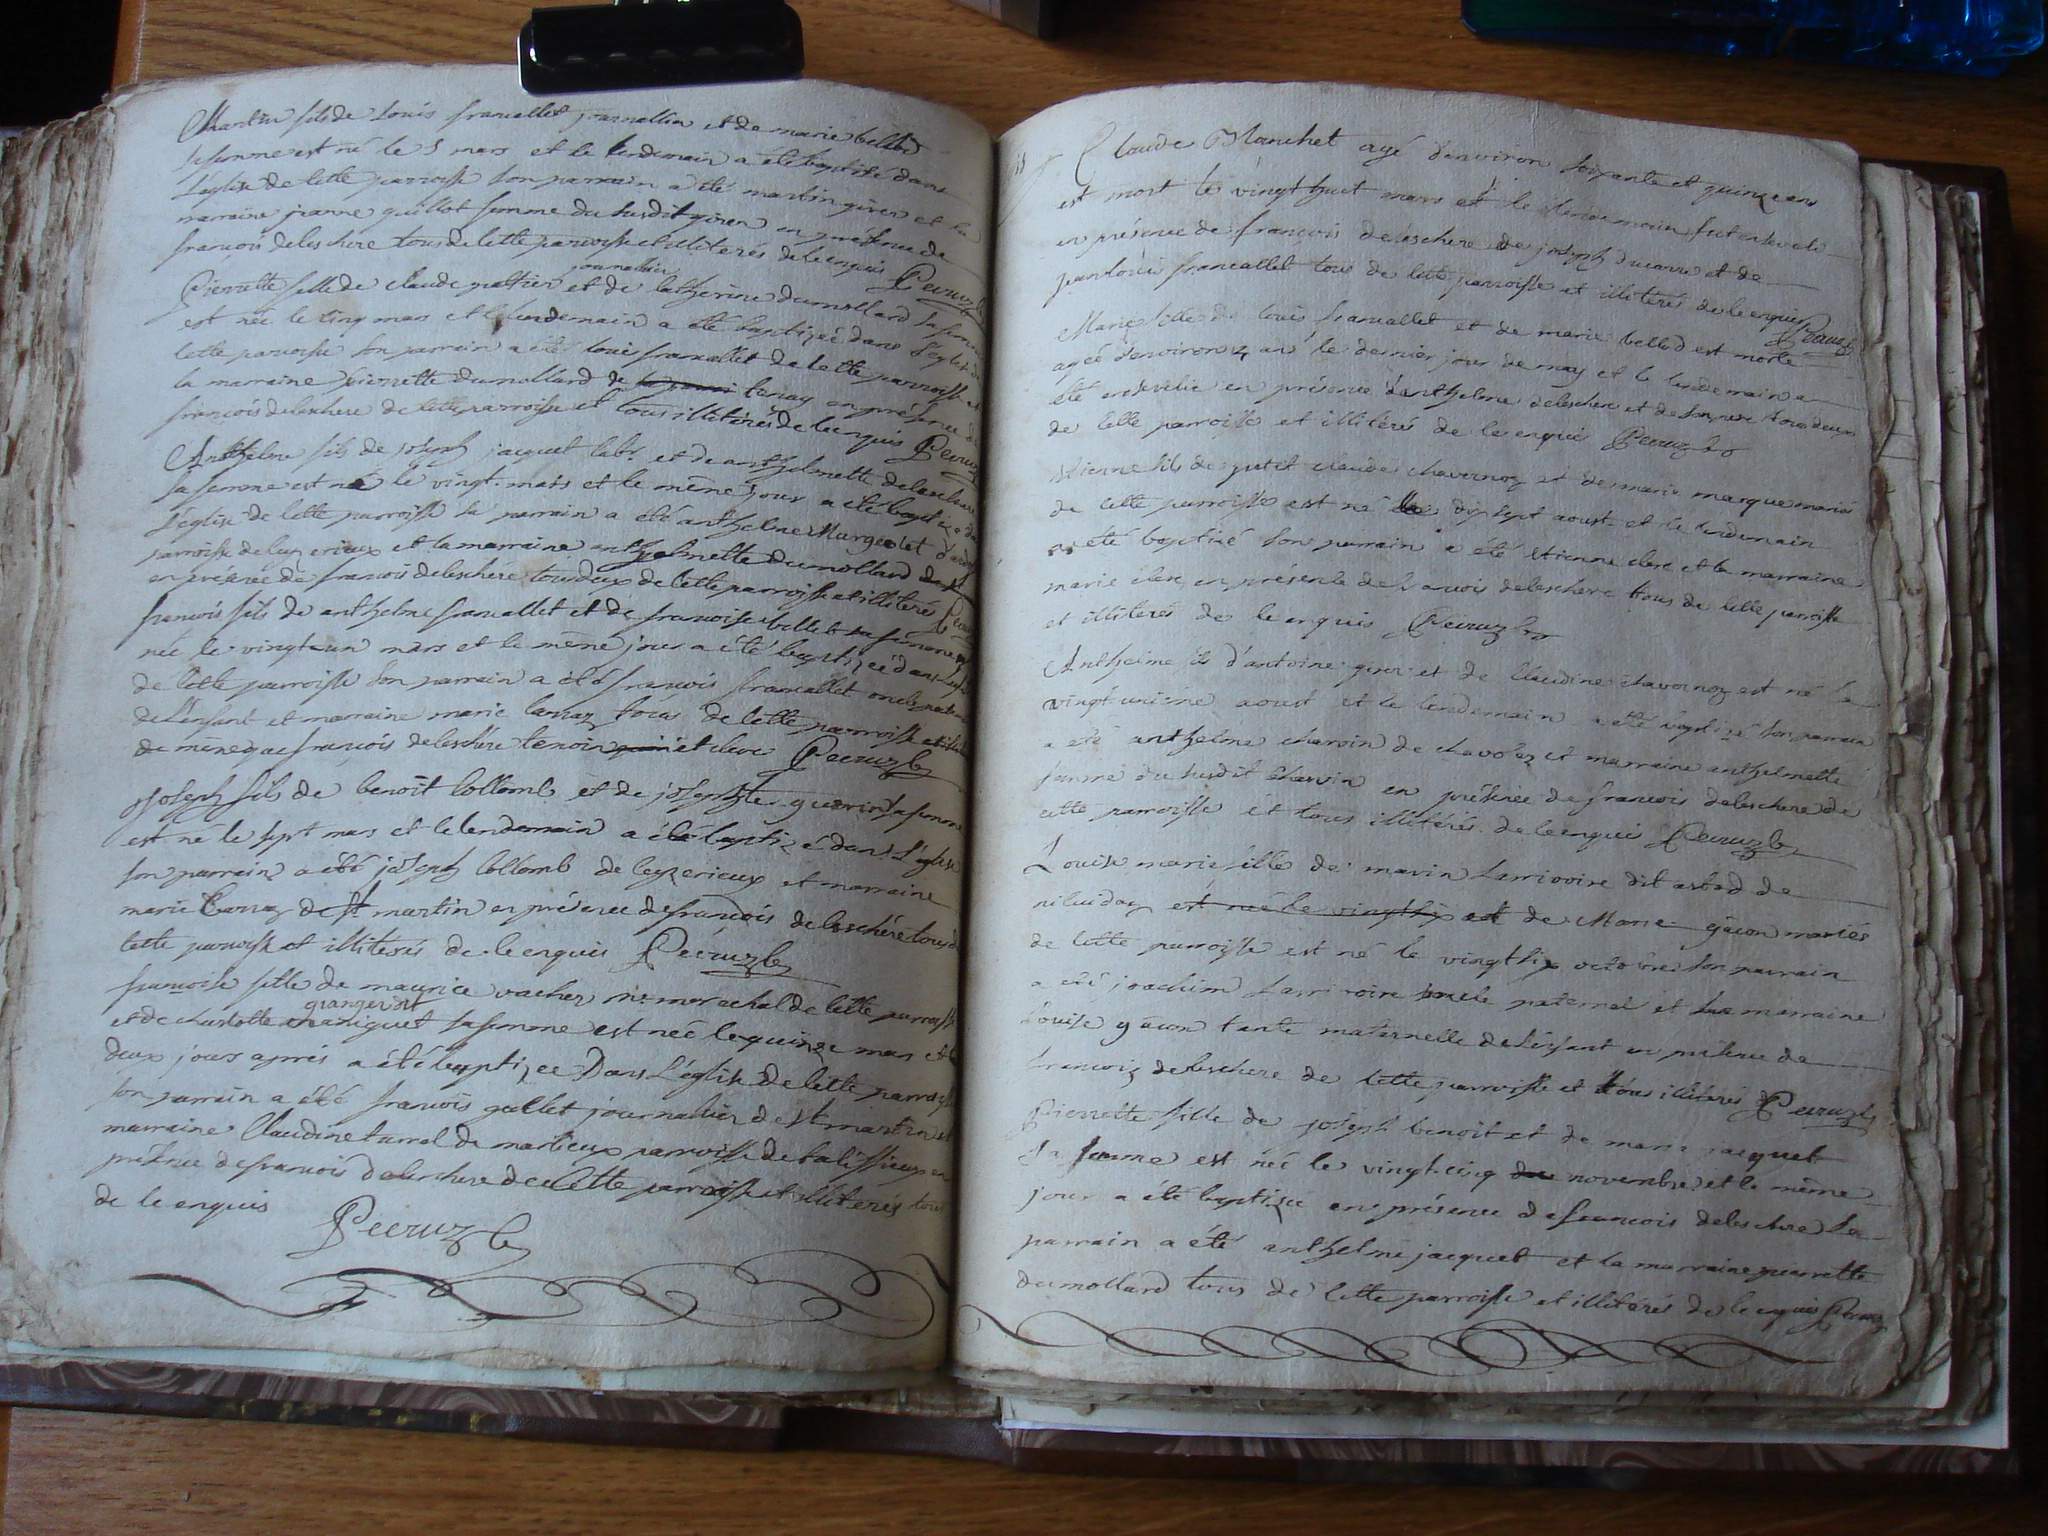 Martin fils de Louis francallet journallier et de marie bellod
sa femme est né le 5 mars et le lendemain a été baptisé dans
L'église de cette parroisse son parrain a été martin giren et la
marraine jeanne guillot femme du susdit giren en présence de
françois deleschere tous de cette parroisse et illiterés de ce enquis Pecruz
journallier
Pierrette fille de claude gottier et de catherine dumollard sa femme
est née le cinq mars et le lendemain a été baptizée dans l'église de
cette parroisse son parrain a été louis francallet de cette parroisse et
la marraine pierrette dumollard de tenay en présence de
françois deleschere de cette parroisse et tous illiterés de ce enquis Pecruz
Anthelme fils de joseph jacquet labr et de anthelmette deleschere
sa femme est né le vingt mars et le même jour a été baptizé dans
L'église de cette parroisse le parrain a été anthelme
parroisse de et la marraine anthelmette dumollard
en présence de francois deleschére tous deux de cette parroisse et illiterés
francois fils de anthelme francallet et de francoise bellet sa femme
né le vingt un mars et le même jour a été baptizé dans
de cette parroisse son parrain a été francois francallet oncle
de L'enfant et marraine marie carraz tous de cette parroisse
de même que françois deleschére temoin et clerc Pecruz
joseph fils de benoit Collomb et de josephte guerin sa femme
est né le sept mars et le lendemain a été baptizé dans L'église
son parrain a été joseph Collomb de et marraine
marie Carraz de St martin en présence de francois deleschére tous de
cette parroisse et illiterés de ce enquis Pecruz
françoise fille de maurice vacher mareschal de cette parroisse
granger dit
et de charlotte sa femme est née le quinze mars et
deux jours aprés a été baptizee Dans L'église de cette parroisse
son parrain a été francois gullet journalier de St martin et
marraine Claudine turrel de marlieux parroisse de en
présence de francois deleschere de cette parroisse et illiterés tous
de ce enquis Pecruz
Claude Blanchet agé d'environ soixante et quinze ans
est mort le vingt huit mars et le lendemain fut enseveli
en présence de françois deleschere de joseph et de
jean louis francallet tous de cette parroisse et illiterés de ce enquis Pecruz
Marie fille de louis francallet et de marie bellod est morte
ageé d'environ 4 ans le dernier jour de may et le lendemain a
été ensevelie en présence d'anthelme deleschere et de son pere tous deux
de cette parroisse et illiterés de ce enquis Pecruz
Etienne fils de petit claude chavornoz et de marie marque mariés
de cette parroisse est né le dix sept aoust et le lendemain
a été baptizé son parrain a été Etienne clerc et la marraine
marie clerc en présence de francois deleschere tous de cette parroisse
et illiterés de ce enquis Pecruz
Anthelme fils d'antoine giren et de Claudine chavornoz est né le
vingt unième aoust et le lendemain a été baptizé son parrain
a été anthelme charvin de et marraine anthelmette
femme du susdit charvin en présence de francois deleschere de
cette parroisse et tous illiterés de ce enquis Pecruz
Louise marie fille de marin Larrivoire dit de
est née le vingt six et de Marie gâcon mariés
de cette parroisse est né le vingt six octobre son parrain
a été joachim Larrivoire oncle paternel et marraine
Louise gâcon tante maternelle de L'enfant en présence de
francois deleschere de cette parroisse et tous illiterés Pecruz
Pierrette fille de joseph benoit et de marie jacquet
Sa femme est née le vingt cinq novembre et le même
jour a été baptizée en présence de francois deleschere Le
parrain a été anthelme jacquet et la marraine pierrette
dumollard tous de cette parroisse et illiterés de ce enquis Pecruz